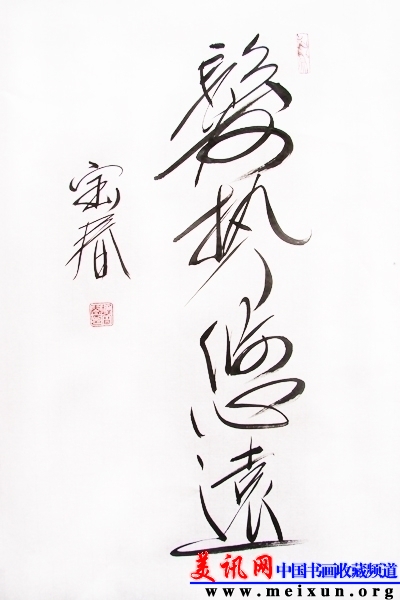 髮势悠遠
宝春
美讯网 中国书画收藏频道
www.meixun.org